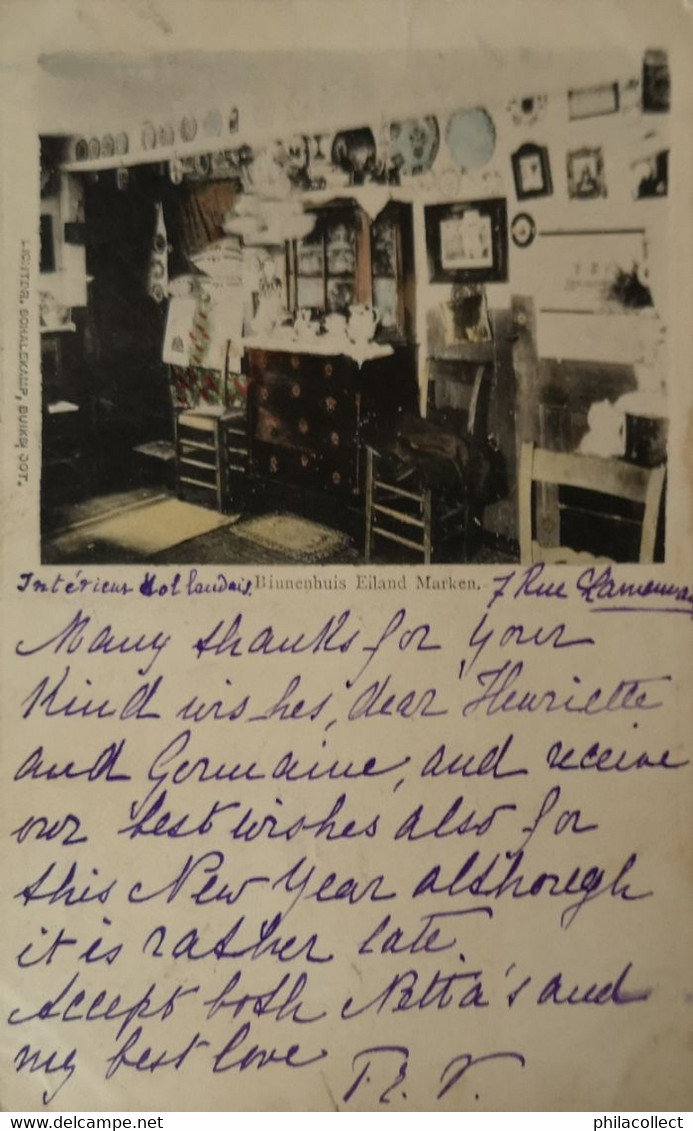 Intérieur Hollandais. Binnenhuis Eiland Marken. 7 Rue
Many thanks for your
kind wishes, dear Henriette
and Germaine, and receive
our best wishes also for
this New Year although
it is rather late.
Accept both Netta's and
my best love
T. E. V.
philacollect